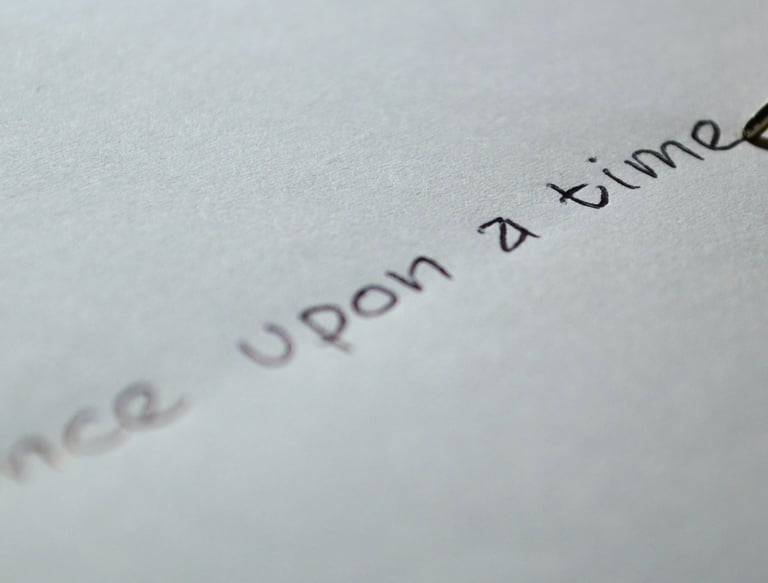 nce upon a time